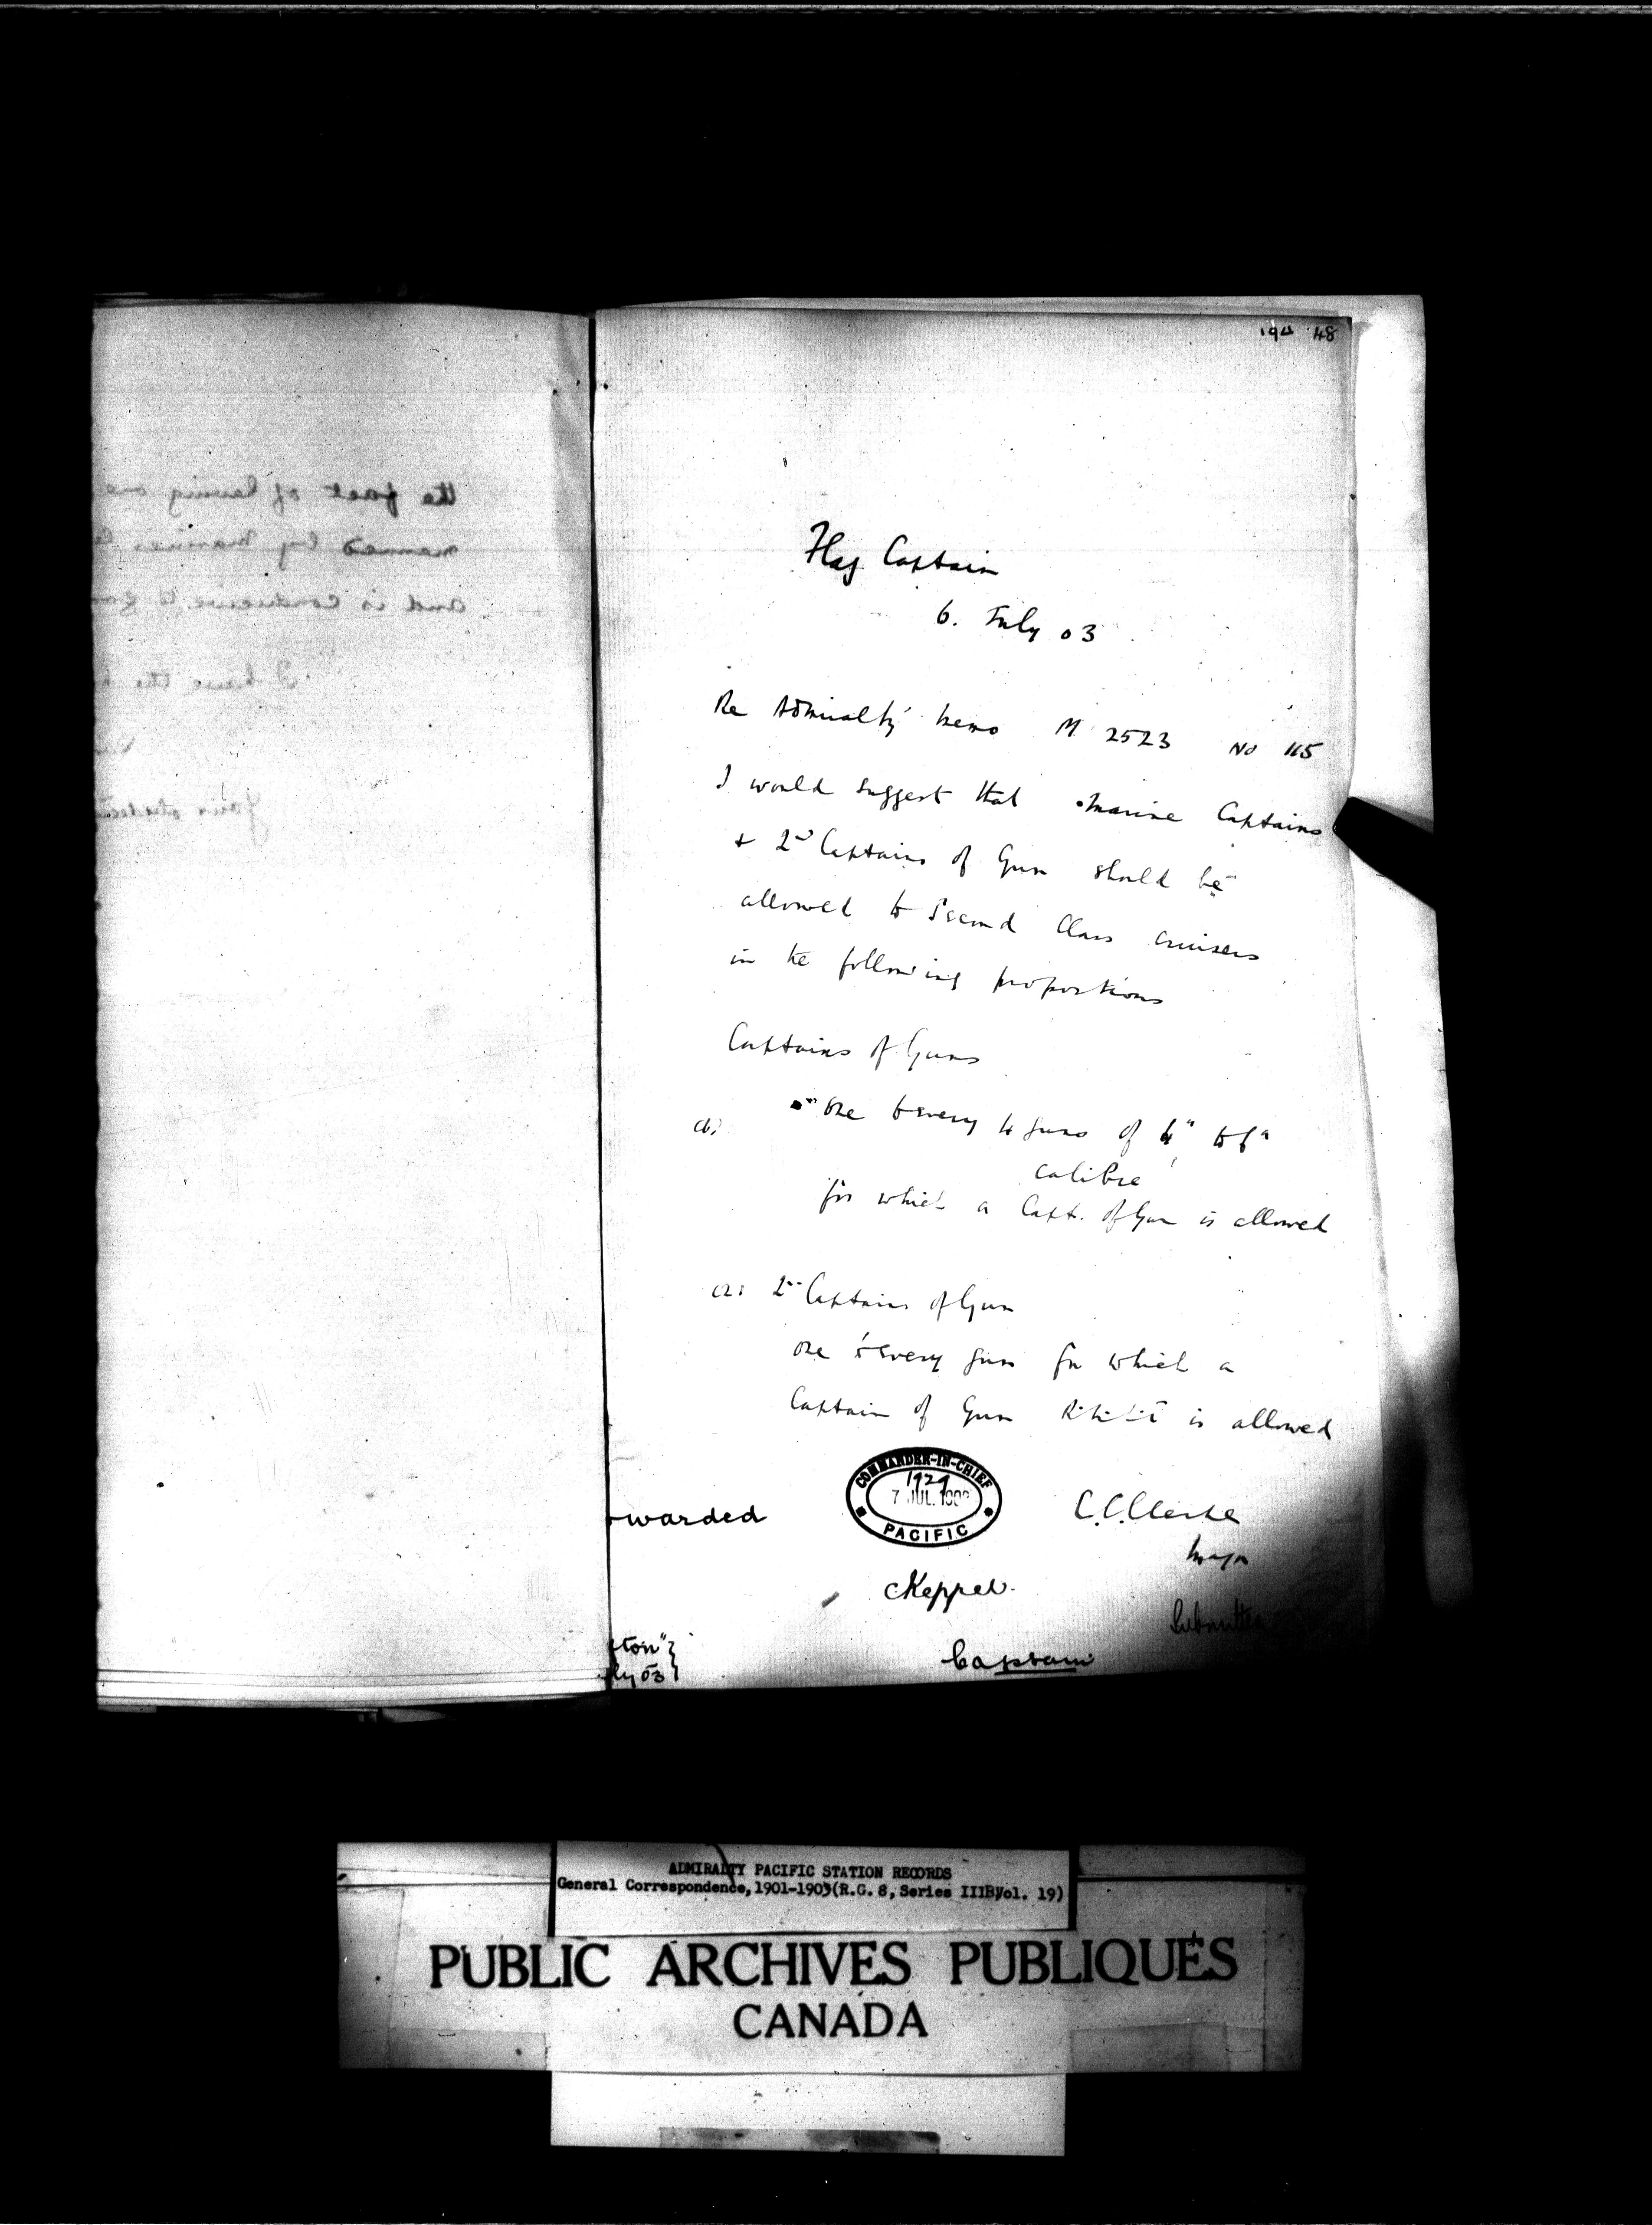 48
Flag Captain
6. July 03
Re Admiralty memo M 2523 No 115
I would suggest that marine Captains
+ 2nd Captains of Gun should be
allowed to Second Class Cruisers
in the following proportions
Captains of Guns
(1) One to every 4 guns of 4" to 6"
calibre
for which a Capt. of Gun is allowed
(2) 2nd Captains of Gun
One to every gun for which a
Captain of Gun is allowed
COMMANDER-IN-CHIEF
1929
7 JUL. 1903
PACIFIC
warded
C.C. Clerke
Major
CKeppel.
Submitted
ton"}
ly 03}
Captain
the fact of having one
manned by Marines
and is conducive to
I have the
Your obedient
ADMIRALTY PACIFIC STATION RECORDS
General Correspondence, 1901-1903 (R.G. 8, Series IIIB, Vol. 19)
PUBLIC ARCHIVES PUBLIQUES
CANADA